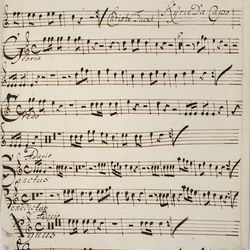 Christe Tacet Kÿrie Da Capo
Gloria
Credo
Adagio
Sanctus
Benedictus
Adagio
Agnus